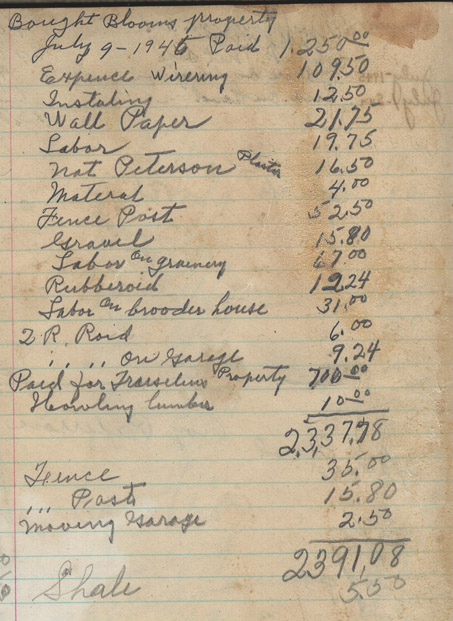 Bought Blooms property
July 9-1946 Paid 1.250.00
Expence wirering 109.50
Instaling 12.50
Wall Paper 21.75
Labor 19.75
Nat Peterson Plaster 16.50
Material 4.00
Fence Post 52.50
Gravel 15.80
Labor On grainery 67.00
Rubberoid 12.24
Labor On brooder house 31.00
2 R. Roid 6.00
" " On Garage 9.24
Paid for Property 700.00
Howling lumber 10.00
2,337.78
Fence 35.00
" Post 15.80
Moving Garage 2.50
2391,08
Shale 5.50